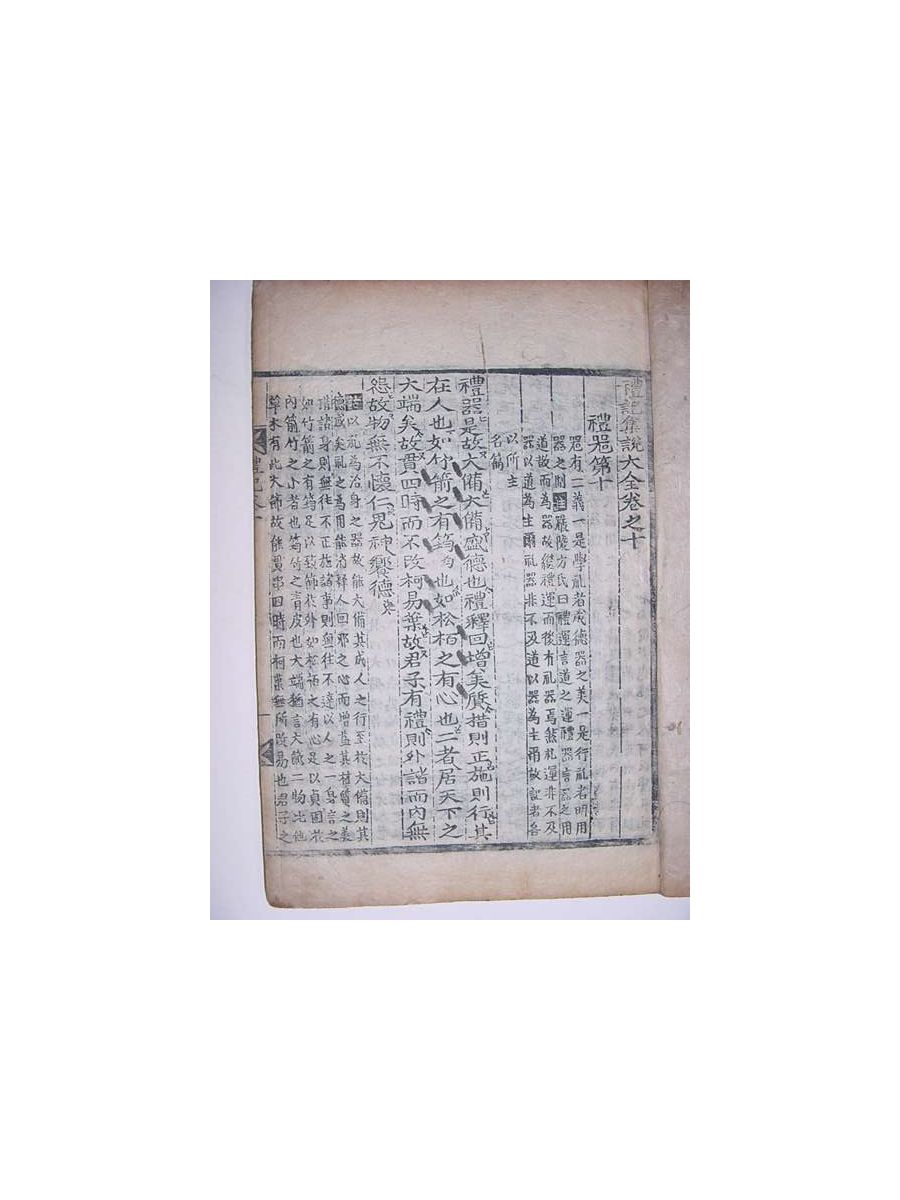 禮記集說大全卷之十
禮器第十
器有二義一是學礼者成德器之美一是行礼者明用
器之制 嚴陵方氏曰禮運言道之運禮器言器之用
道故而為器故繼禮運而後有礼器焉然礼運非不及
器以道為主爾礼器非不及道以器為主爾故記者各
以所主
名篇
禮器是故大備大備盛德也禮釋回增美質措則正施則行其
在人也如竹箭之有筠也如松栢之有心也二者居天下之
大端矣故貫四時而不改柯易葉故君子有禮則外諧而內無
怨故物無不懷仁鬼神饗德
以礼為治身之器故能大備其成人之行至於大備則其
德盛矣礼之為用能消釋人回邪之心而增益其材質之美
措諸身則無往不正施諸事則無往不達以人之一身言之
如竹箭之有筠足以致飾於外如松栢之有心足以貞固於
內箭竹之小者也筠竹之青皮也大端猶言大節二物比他
草木有此大節故能貫串四時而柯葉無所改易也君子之